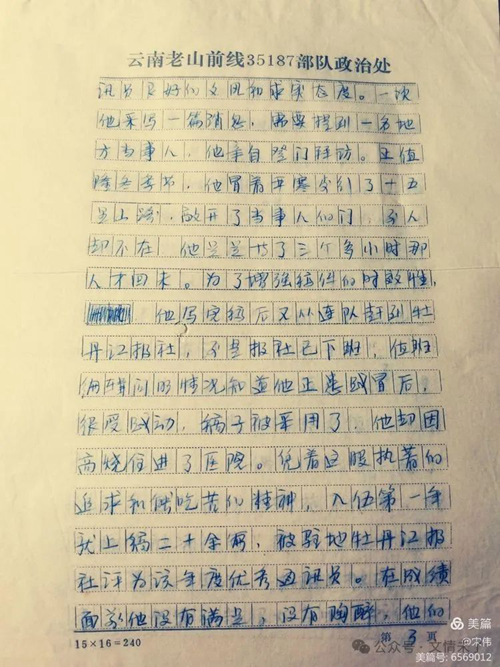 云南老山前线35187部队政治处
讯员良好的文风和求实态度。一次
他采写一篇消息，需要提到一名地
方当事人，他亲自登门拜访。正值
隆冬季节，他冒着严寒步行了十五
里上路，敲开了当事人的门，
却不在 他足足等了三个多小时那
人才回来。为了增强稿件的时效性，
他写完稿后又从连队赶到牡
丹江报社，不料报社已下班，值班
编辑问明情况知道他正患感冒后，
很受感动，稿子被采用了，他却因
高烧住进了医院。凭着这股执著的
追求和能吃苦的精神，入伍第一年
就上稿二十余篇，被驻地牡丹江报
社评为该年度优秀通讯员。在成绩
面前他没有满足，没有陶醉，他的
15×16=240
第 3 页
公众号：文情
美篇
@宋伟
美篇号：6569012